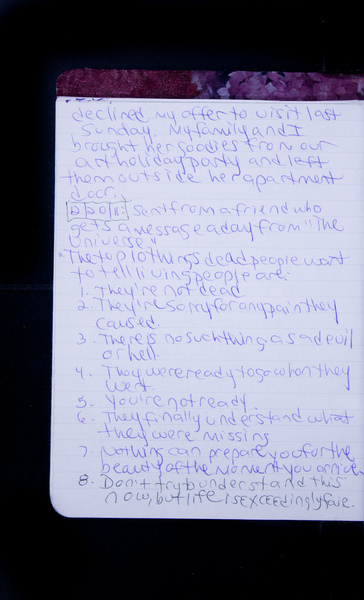 declined my offer to visit last
Sunday. My family and I
brought her goodies from our
art holiday party and left
them outside her apartment
door.
Sent from a friend who
gets a message a day from "The
Universe"
"The top 10 things dead people want
to tell living people are:
1. They're not dead
2. They're sorry for any pain they
caused.
3. There is no such thing as a devil
or hell.
4. They were ready to go when they
went.
5. You're not ready.
6. They finally understand what
they were missing
7. Nothing can prepare you for the
beauty of the moment you arrive.
8. Don't try to understand this
now, but life is exceedingly fair.